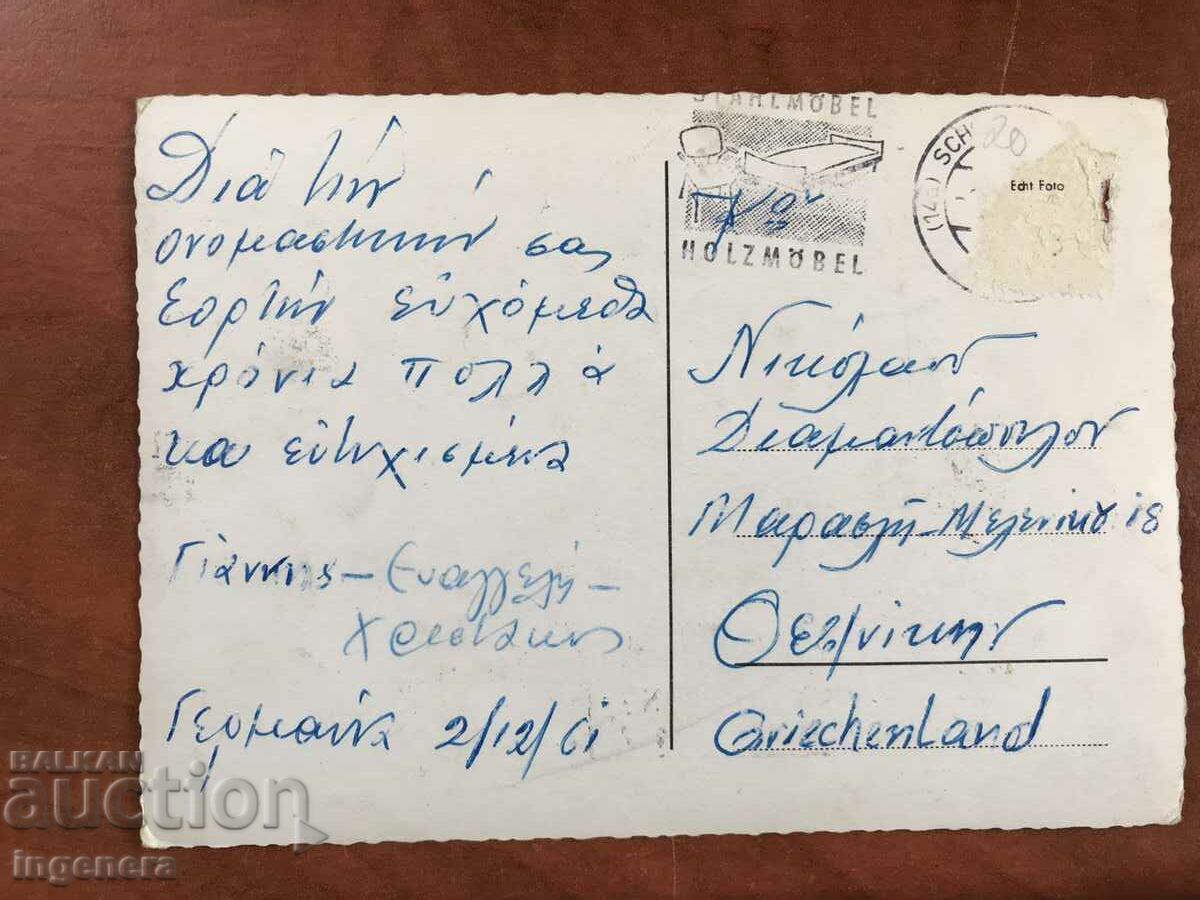 Διά τήν
ονομαστικήν σας
Εορτήν εὐχόμεθα
χρόνια πολλά
και εὐτυχισμένα
Γιάννης - Ευαγγελή -
Χρηστάκης
Γερμανία 2/12/61
STAHLMÖBEL
HOLZMÖBEL
SCH
20
Echt Foto
Νικόλαον
Διαμαντόπουλον
Μαρασλή - Μελενίκου 18
Θεσ/νίκην
Griechenland
BALKAN
auction
ingenera